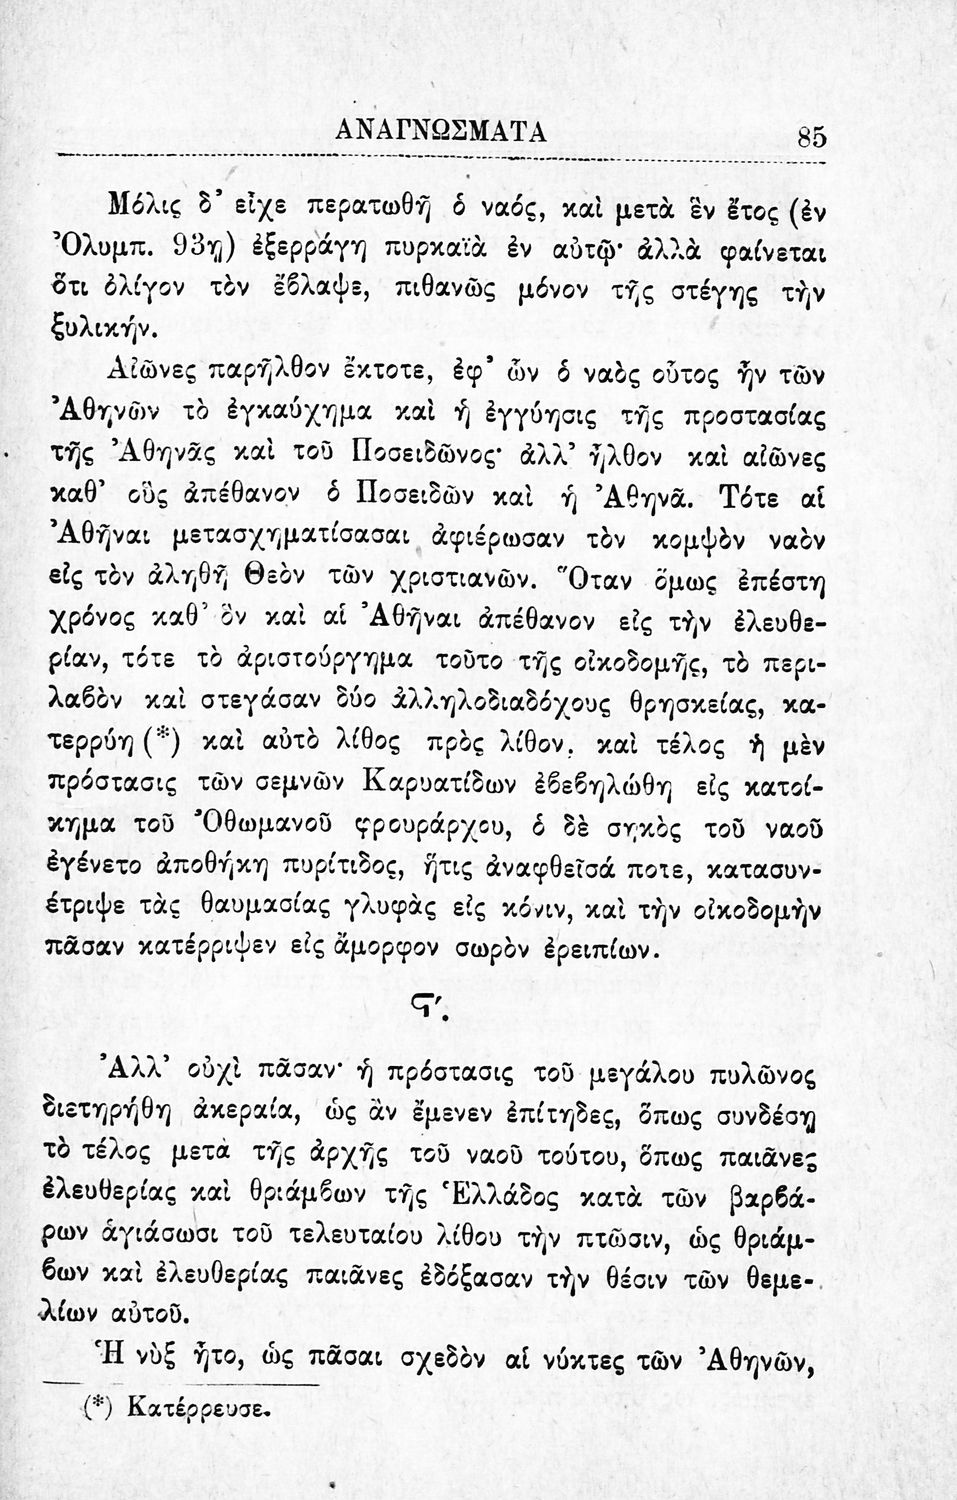 ΑΝΑΓΝΩΣΜΑΤΑ 85
Μόλις δ’ εἶχε περατωθῆ ὁ ναός, καὶ μετὰ ἓν ἔτος (ἐν
Ὀλυμπ. 93ῃ) ἐξερράγη πυρκαϊὰ ἐν αὐτῷ· ἀλλὰ φαίνεται
ὅτι ὀλίγον τὸν ἔϐλαψε, πιθανῶς μόνον τῆς στέγης τὴν
ξυλικήν.
Αἰῶνες παρῆλθον ἔκτοτε, ἐφ’ ὧν ὁ ναὸς οὗτος ἦν τῶν
Ἀθηνῶν τὸ ἐγκαύχημα καὶ ἡ ἐγγύησις τῆς προστασίας
τῆς Ἀθηνᾶς καὶ τοῦ Ποσειδῶνος· ἀλλ’ ἦλθον καὶ αἰῶνες
καθ’ οὓς ἀπέθανον ὁ Ποσειδῶν καὶ ἡ Ἀθηνᾶ. Τότε αἱ
Ἀθῆναι μετασχηματίσασαι ἀφιέρωσαν τὸν κομψὸν ναὸν
εἰς τὸν ἀληθῆ Θεὸν τῶν χριστιανῶν. Ὅταν ὅμως ἐπέστη
χρόνος καθ’ ὃν καὶ αἱ Ἀθῆναι ἀπέθανον εἰς τὴν ἐλευθε-
ρίαν, τότε τὸ ἀριστούργημα τοῦτο τῆς οἰκοδομῆς, τὸ περι-
λαϐὸν καὶ στεγάσαν δύο ἀλληλοδιαδόχους θρησκείας, κα-
τερρύη (*) καὶ αὐτὸ λίθος πρὸς λίθον, καὶ τέλος ἡ μὲν
πρόστασις τῶν σεμνῶν Καρυατίδων ἐϐεϐηλώθη εἰς κατοί-
κημα τοῦ Ὀθωμανοῦ φρουράρχου, ὁ δὲ σηκὸς τοῦ ναοῦ
ἐγένετο ἀποθήκη πυρίτιδος, ἥτις ἀναφθεῖσά ποτε, κατασυν-
έτριψε τὰς θαυμασίας γλυφὰς εἰς κόνιν, καὶ τὴν οἰκοδομὴν
πᾶσαν κατέρριψεν εἰς ἄμορφον σωρὸν ἐρειπίων.
Ϛ′.
Ἀλλ’ οὐχὶ πᾶσαν· ἡ πρόστασις τοῦ μεγάλου πυλῶνος
διετηρήθη ἀκεραία, ὡς ἂν ἔμενεν ἐπίτηδες, ὅπως συνδέσῃ
τὸ τέλος μετὰ τῆς ἀρχῆς τοῦ ναοῦ τούτου, ὅπως παιᾶνες
ἐλευθερίας καὶ θριάμϐων τῆς Ἑλλάδος κατὰ τῶν βαρϐά-
ρων ἁγιάσωσι τοῦ τελευταίου λίθου τὴν πτῶσιν, ὡς θριάμ-
ϐων καὶ ἐλευθερίας παιᾶνες ἐδόξασαν τὴν θέσιν τῶν θεμε-
λίων αὐτοῦ.
Ἡ νὺξ ἦτο, ὡς πᾶσαι σχεδὸν αἱ νύκτες τῶν Ἀθηνῶν,
(*) Κατέρρευσε.